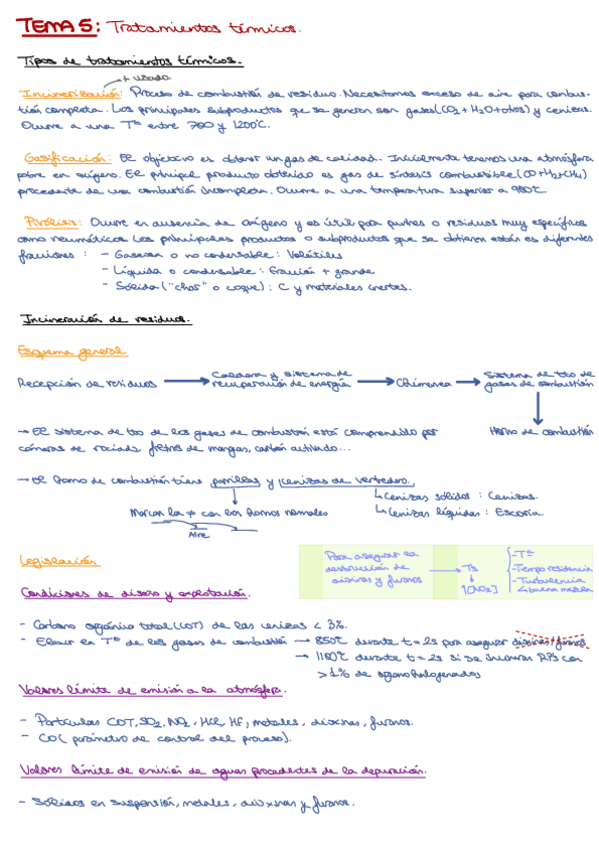 TEMA 5: Tratamientos térmicos.
Tipos de tratamientos térmicos.
+ usada
Incineración: Proceso de combustión de residuo. Necesitamos exceso de aire para combus-
tión completa. Los principales subproductos que se generan son gases (CO2 + H2O + otros) y cenizas.
Ocurre a una Tª entre 700 y 1200ºC.
Gasificación: El objetivo es obtener un gas de calidad. Inicialmente tenemos una atmósfera
pobre en oxígeno. El principal producto obtenido es gas de síntesis combustible (CO+H2+CH4)
procedente de una combustión incompleta. Ocurre a una temperatura superior a
Pirólisis: Ocurre en ausencia de oxígeno y es útil para purines o residuos muy específicos
como neumáticos. Los principales productos o subproductos que se obtienen están es diferentes
fracciones : - Gaseosa o no condensable : Volátiles
- Líquida o condensable : Fracción + grande
- Sólida ("char" o coque) : C y materiales inertes.
Incineración de residuos.
Esquema general
Recepción de residuos → Caldera y sistema de
recuperación de energía → Chimenea → Sistema de tto de
gases de combustión
→ El sistema de tto de los gases de combustión está comprendido por
Horno de combustión
cámaras de rociado, filtros de mangas, carbón activado...
→ El horno de combustión tiene parrillas y cenizas de vertedero.
↳ Cenizas sólidas : Cenizas.
Marcan la ≠ con los hornos normales
↳ Cenizas líquidas : Escoria.
Aire
Legislación
Para asegurar la
destrucción de
dioxinas y furanos → T3
↑[NOx]
- Tª
- Tiempo residencia
- Turbulencia
↳ buena mezcla
Condiciones de diseño y explotación.
- Carbono orgánico total (COT) de las cenizas < 3%.
- Elevar la Tª de los gases de combustión → 850ºC durante t = 2s para asegurar dioxinas y furanos
→ 1100ºC durante t = 2s si se incineran RPs con
> 1% de organohalogenados
Valores límite de emisión a la atmósfera.
- Partículas COT, SO2, NO2, HCl, HF, metales, dioxinas, furanos.
- CO ( parámetro de control del proceso).
Valores límite de emisión de aguas procedentes de la depuración.
- Sólidos en suspensión, metales, dioxinas y furanos.